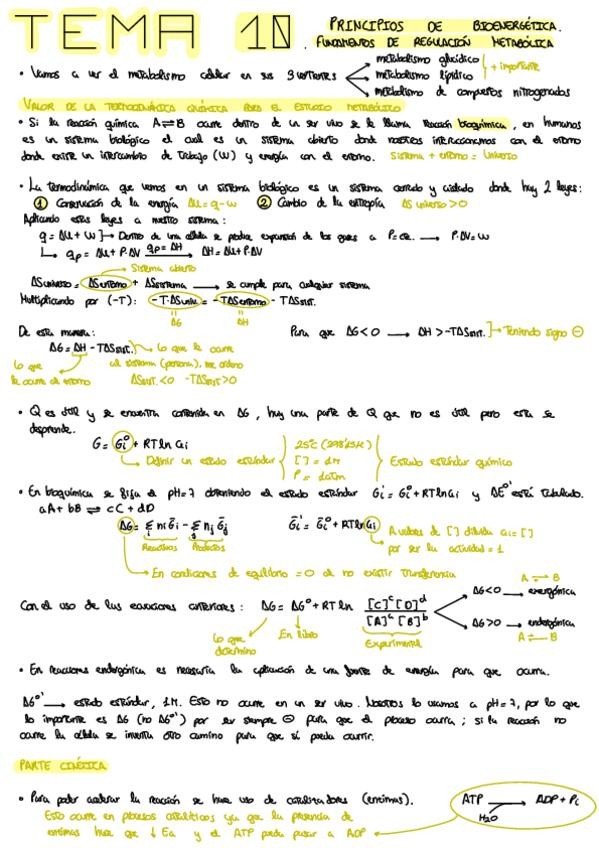 TEMA 10. PRINCIPIOS DE BIOENERGÉTICA.
FUNDAMENTOS DE REGULACIÓN METABÓLICA
• Vamos a ver el metabolismo celular en sus 3 vertientes
metabolismo glucídico
metabolismo lipídico
+ importante
metabolismo de compuestos nitrogenados
VALOR DE LA TERMODINÁMICA QUÍMICA PARA EL ESTUDIO METABÓLICO
• Si la reacción química A⇌B ocurre dentro de un ser vivo se le llama reacción bioquímica, en humanos
es un sistema biológico el cual es un sistema abierto donde nosotros interaccionamos con el entorno
donde existe un intercambio de trabajo (W) y energía con el entorno. Sistema + entorno = Universo
• La termodinámica que vemos en un sistema biológico es un sistema cerrado y aislado donde hay 2 leyes:
① Conservación de la energía ΔU=q-w ② Cambio de la entropía ΔS universo >0
Aplicando estas leyes a nuestro sistema:
q = ΔU + W → Dentro de una célula se produce expansión de los gases a P=cte. → P·ΔV=W
↳ qp = ΔU + P·ΔV qp=ΔH → ΔH = ΔU+P·ΔV
Sistema abierto
ΔSuniverso = ΔSentorno + ΔSsistema → se cumple para cualquier sistema
Multiplicando por (-T): -T·ΔSuniv = -TΔSentorno - TΔSsist.
ΔG ΔH
De esta manera: Para que ΔG<0 → ΔH > -TΔSsist. → Teniendo signo ⊖
ΔG = ΔH - TΔSsist. → Lo que le ocurre
al sistema (persona), me ordeno
Lo que
le ocurre al entorno
ΔSsist. <0 -TΔSsist >0
• Q es útil y se encuentra contenida en ΔG, hay una parte de Q que no es útil pero esta se
desprende.
G = Gi° + RT ln ai
Definir un estado estándar
25°C (298'15K)
[ ] = 1M
P = 1atm
Estado estándar químico
• En bioquímica se fija el pH=7 obteniendo el estado estándar Gi' = Gi° + RT ln ai y ΔE°' está tabulado.
aA + bB ⇌ cC + dD
ΔG = Σ ni Ḡi - Σ nj Ḡj
i j
Reactivos Productos
Ḡi' = Ḡi° + RT ln ai
A valores de [ ] diluida ai=[ ]
por ser la actividad = 1
→ En condiciones de equilibrio = 0 al no existir transferencia
Con el uso de las ecuaciones anteriores: ΔG = ΔG° + RT ln [C]ᶜ [D]ᵈ / [A]ᵃ [B]ᵇ
A ⇌ B
ΔG<0 → exergónica
ΔG>0 → endergónica
A ⇌ B
Lo que
determino
En libro
Experimental
• En reacciones endergónica es necesaria la aplicación de una fuente de energía para que ocurra.
ΔG°' → estado estándar, 1M. Esto no ocurre en un ser vivo. Nosotros lo usamos a pH=7, por lo que
lo importante es ΔG (no ΔG°') por ser siempre ⊖ para que el proceso ocurra; si la reacción no
ocurre la célula se inventa otro camino para que sí pueda ocurrir.
PARTE CINÉTICA
• Para poder acelerar la reacción se hace uso de catalizadores (enzimas).
Esto ocurre en procesos catalíticos ya que la presencia de
enzimas hace que ↓Ea y el ATP pueda pasar a ADP
ATP → ADP + Pi
H₂O